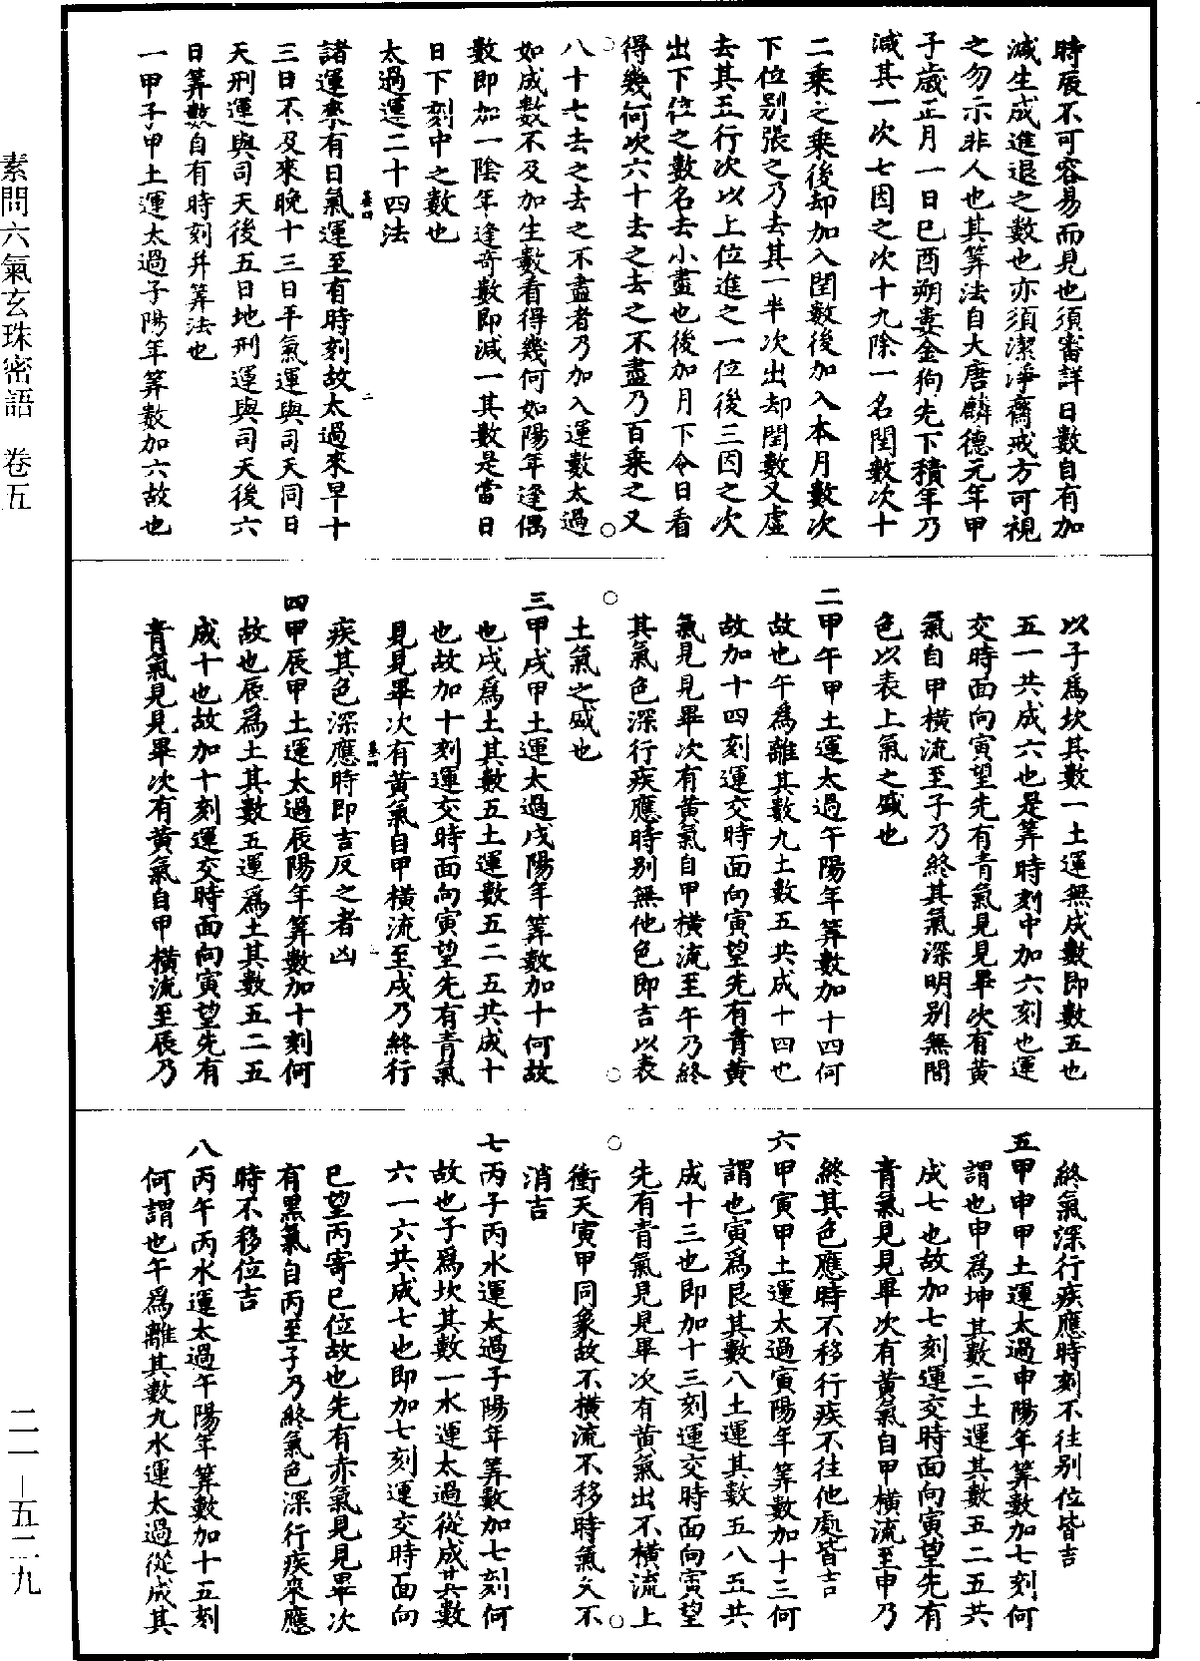 時辰不可容易而見也須審詳日數自有加
減生成進退之數也亦須潔淨齋戒方可視
之勿示非人也其筭法自大唐麟德元年甲
子歲正月一日巳酉朔婁金狗先下積年乃
減其一次七因之次十九除一名閏數次十
二乘之乘後却加入閏數後加入本月數次
下位別張之乃去其一半次出却閏數又虛
去其五行次以上位進之一位後三因之次
出下位之數名去小盡也後加月下令日看
得幾何次六十去之去之不盡乃百乘之又
八十七去之去之不盡者乃加入運數太過
如成數不及加生數看得幾何如陽年逢偶
數即加一陰年逢奇數即減一其數是當日
日下刻中之數也
太過運二十四法
諸運來有日氣運至有時刻故太過來早十
三日不及來晚十三日平氣運與司天同日
天刑運與司天後五日地刑運與司天後六
日筭數自有時刻并筭法也
一甲子甲土運太過子陽年筭數加六故也
以子爲坎其數一土運無成數即數五也
五一共成六也是筭時刻中加六刻也運
交時面向寅望先有青氣見見畢次有黃
氣自甲橫流至子乃終其氣深明別無間
色以表上氣之盛也
二甲午甲土運太過午陽年筭數加十四何
故也午爲離其數九土數五共成十四也
故加十四刻運交時面向寅望先有青黃
氣見見畢次有黃氣自甲橫流至午乃終
其氣色深行疾應時別無他色即吉以表
土氣之盛也
三甲戌甲土運太過戌陽年筭數加十何故
也戌爲土其數五土運數五二五共成十
也故加十刻運交時面向寅望先有青氣
見見畢次有黃氣自甲橫流至戌乃終行
疾其色深應時即吉反之者凶
四甲辰甲土運太過辰陽年筭數加十刻何
故也辰爲土其數五運爲土其數五二五
成十也故加十刻運交時面向寅望先有
青氣見見畢次有黃氣自甲橫流至辰乃
終氣深行疾應時刻不往別位皆吉
五甲申甲土運太過申陽年筭數加七刻何
謂也申爲坤其數二土運其數五二五共
成七也故加七刻運交時面向寅望先有
青氣見見畢次有黃氣自甲橫流至申乃
終其色應時不移行疾不往他處皆吉
六甲寅甲土運太過寅陽年筭數加十三何
謂也寅爲艮其數八土運其數五八五共
成十三也即加十三刻運交時面向寅望
先有青氣見見畢次有黃氣出不橫流上
衝天寅甲同象故不橫流不移時氣久不
消吉
七丙子丙水運太過子陽年筭數加七刻何
故也子爲坎其數一水運太過從成其數
六一六共成七也即加七刻運交時面向
巳望丙寄巳位故也先有赤氣見見畢次
有黑氣自丙至子乃終氣色深行疾來應
時不移位吉
八丙午丙水運太過午陽年筭數加十五刻
何謂也午爲離其數九水運太過從成其
素問六氣玄珠密語　卷五
二一—五二九